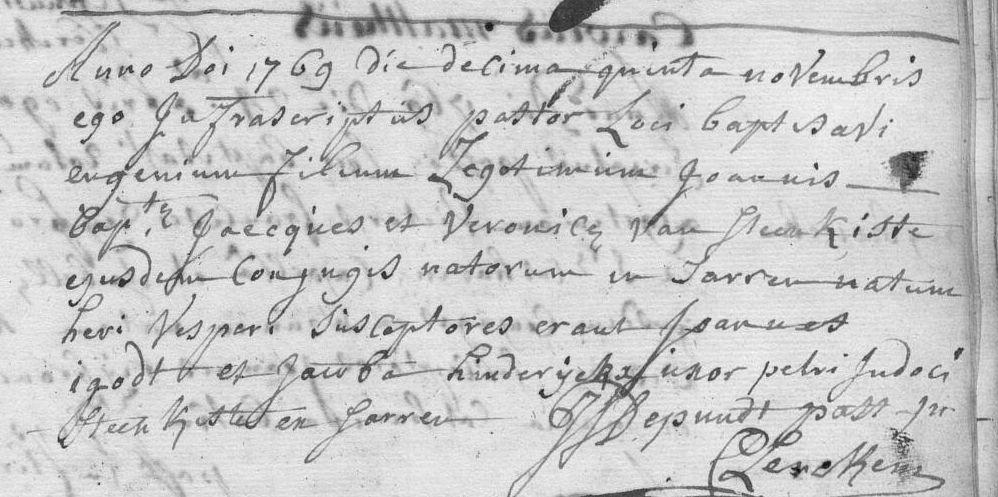 Anno Doi 1769 die decima quinta novembris
ego Infrascriptus pastor Loci baptisavi
eugenium filium Legotimum Joannis
bapte Jacques et Veronicę Van Steenkiste
ejusdem Conjugis natorum in Sarren natum
heri Vesperi Susceptores erant Joannes
igodt et Jacoba hinderyckx uxor petri Judoci
Steenkiste ex Sarren Depuudt past in
Clercken